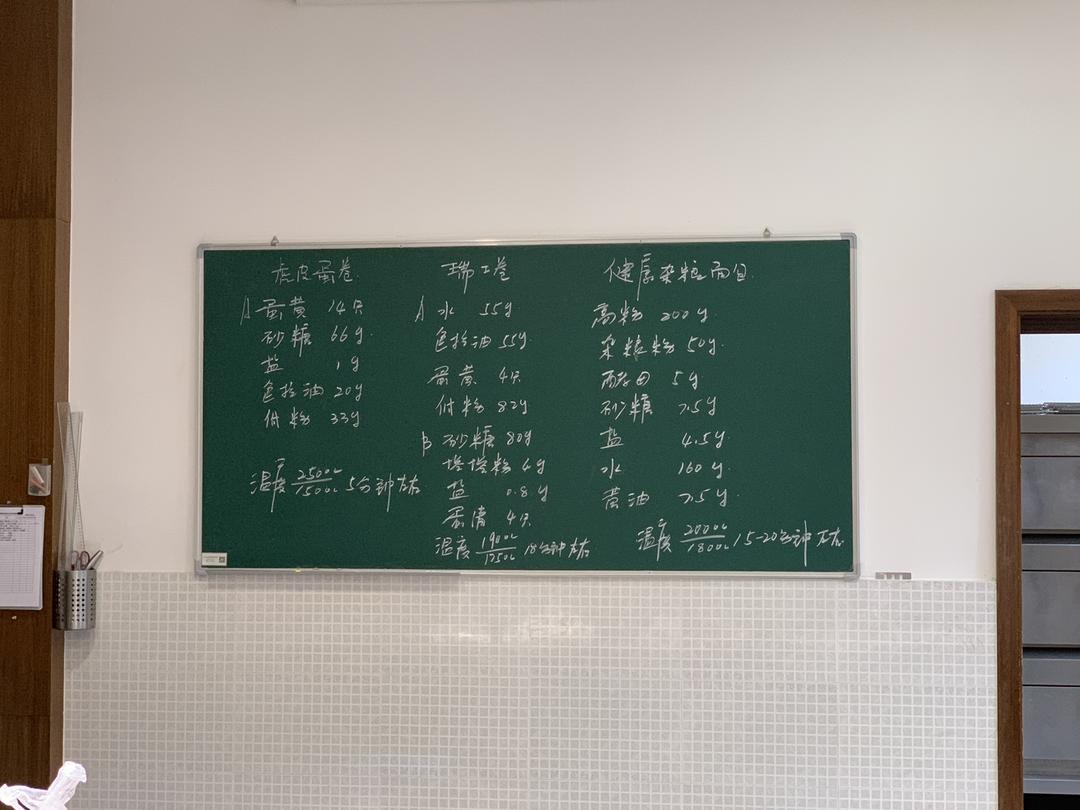 虎皮蛋卷
A 蛋黄 14只
砂糖 66g
盐 1g
色拉油 20g
付粉 33g
温度 250℃/150℃ 5分钟左右
瑞士卷
A 水 55g
色拉油 55g
蛋黄 4只
付粉 82g
B 砂糖 80g
塔塔粉 4g
盐 0.8g
蛋清 4只
温度 190℃/175℃ 18分钟左右
健康杂粮面包
高粉 200g
杂粮粉 50g
酵母 5g
砂糖 7.5g
盐 4.5g
水 160g
黄油 7.5g
温度 200℃/180℃ 15-20分钟左右